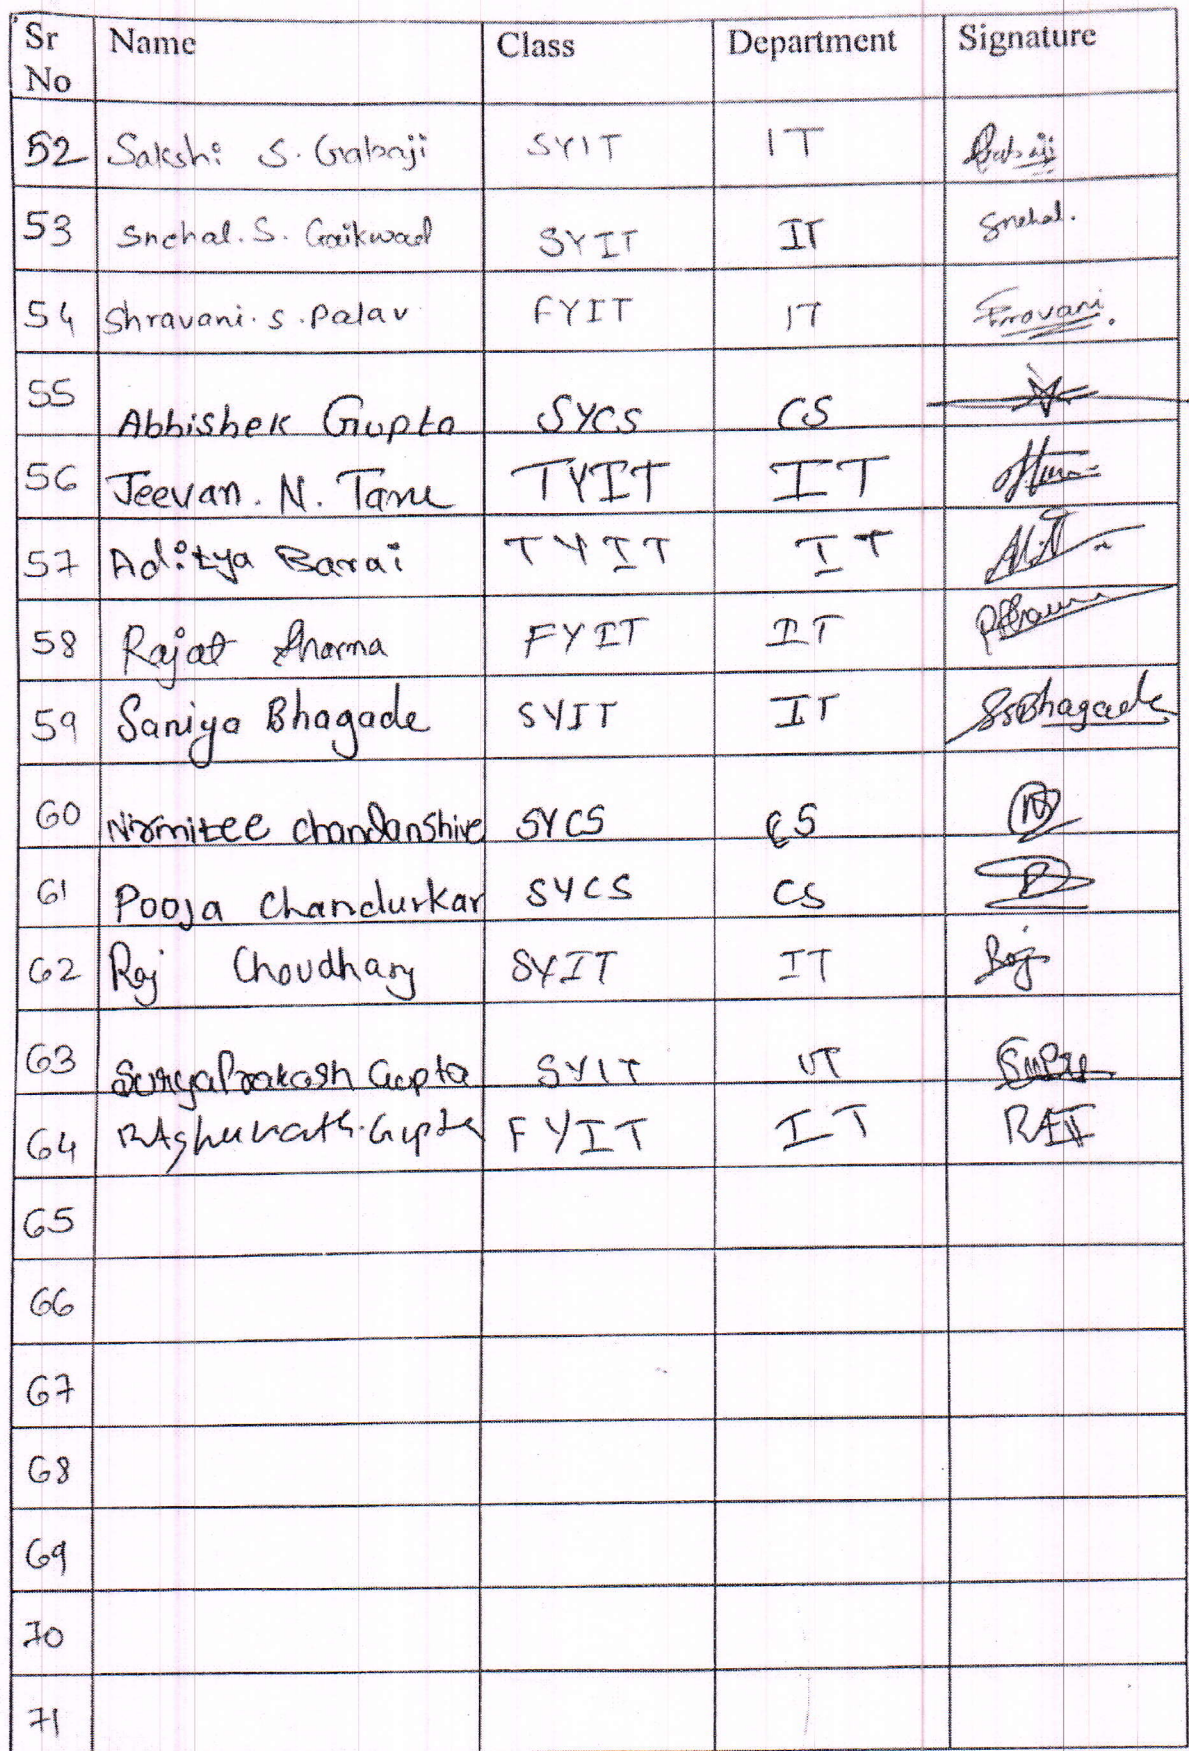 Sr No Name Class Department Signature
52 Sakshi S. Gabaji SYIT IT Gabaji
53 Snehal. S. Gaikwad SYIT IT Snehal.
54 Shravani. S. Palav FYIT IT Shravani.
55 Abhishek Gupta SYCS CS
56 Jeevan. N. Tanu TYIT IT
57 Aditya Barai TYIT IT
58 Rajat Sharma FYIT IT
59 Saniya Bhagade SYIT IT SsBhagade
60 Nirmitee Chandanshive SYCS CS
61 Pooja Chandurkar SYCS CS
62 Raj Choudhary SYIT IT Raj
63 SuryaPrakash Gupta SYIT IT
64 RAghunath. Gupta FYIT IT
65
66
67
68
69
70
71